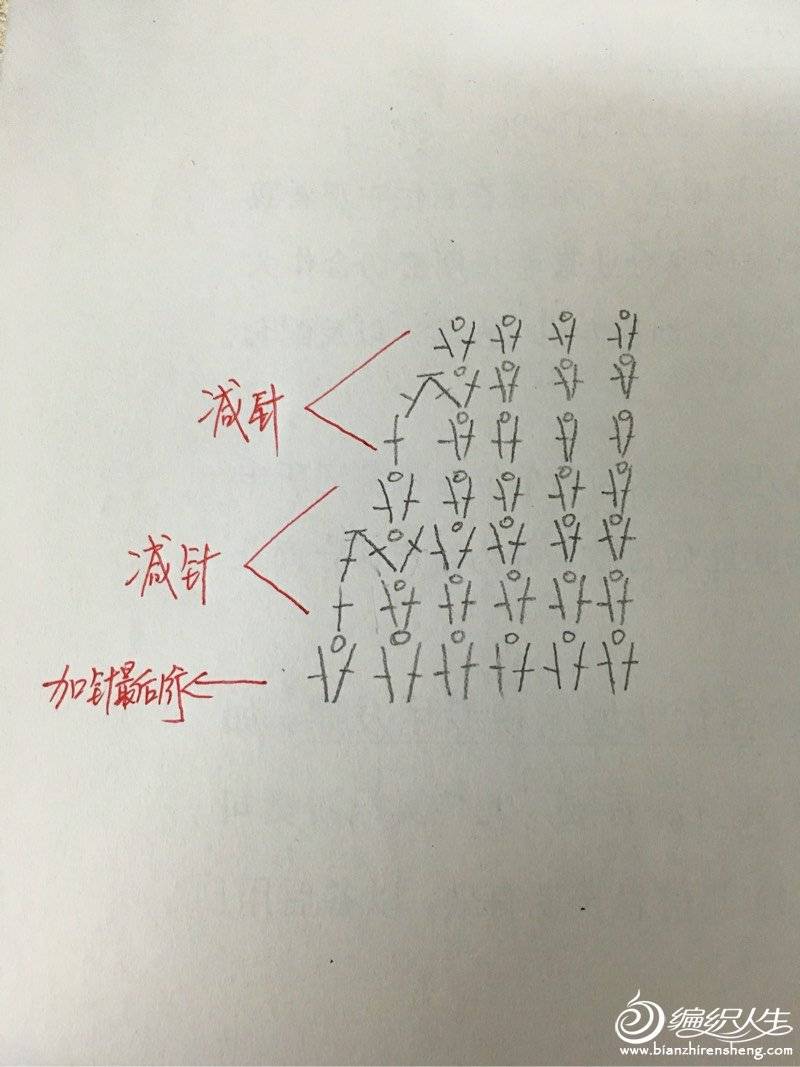 减针
减针
加针最后行
编织人生
www.bianzhirensheng.com